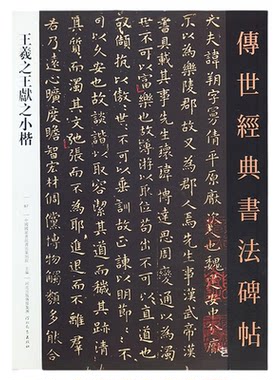 傳世經典書法碑帖
大夫諱朔字曼倩平原厭次人也魏建安中分厭
次以為樂陵郡故又為郡人焉先生事漢武帝漢
書具載其事先生瓌瑋博達思周變通以為濁
世不可以富樂也故薄游以取位苟出不可以直道也
故頡抗以傲世〻不可以垂訓故正諫以明節〻〻不
可以久安也故詼諧以取容潔其道而穢其跡清
其質而濁其文弛張而不為耶進退而不離群
若乃遠心曠度贍智宏材倜儻博物觸類多能合
王羲之王獻之小楷